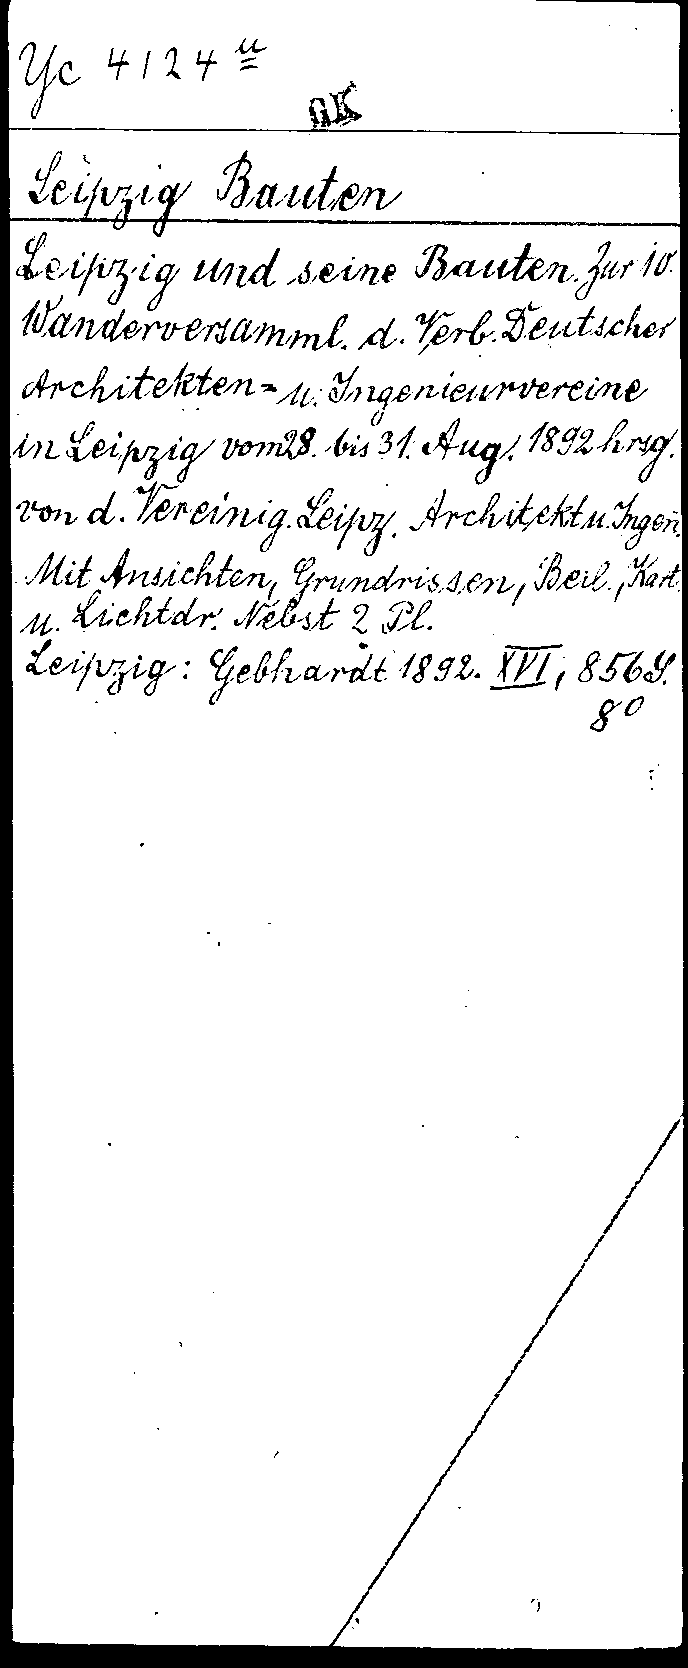 Yc 4124 u
GK
Leipzig Bauten
Leipzig und seine Bauten. Zur 10.
Wanderversamml. d. Verb. Deutscher
Architekten= u. Ingenieurvereine
in Leipzig vom 28. bis 31. Aug. 1892 hrsg.
von d. Vereinig. Leipz. Architekt u. Ingen.
Mit Ansichten, Grundrissen, Beil., Kart.
u. Lichtdr. Nebst 2 Pl.
Leipzig: Gebhardt 1892. XVI, 856 S.
8°